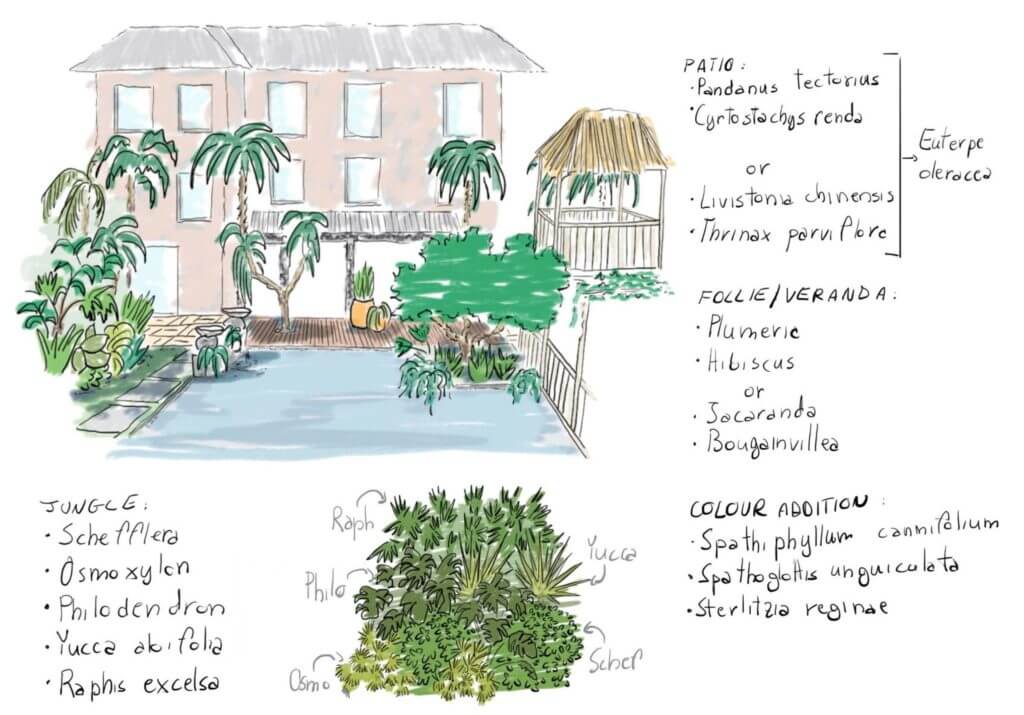 PATIO:
• Pandanus tectorius
• Cyrtostachys renda
or
• Livistonia chinensis
• Thrinax parviflore
Euterpe
oleracca
FOLLIE/VERANDA:
• Plumeric
• Hibiscus
or
• Jacaranda
• Bougainvillea
JUNGLE:
• Schefflera
• Osmoxylon
• Philodendron
• Yucca alifolia
• Raphis excelsa
Raph
Philo
Osmo
Yucca
Schef
COLOUR ADDITION:
• Spathiphyllum cannifolium
• Spathoglottis unguiculata
• Sterlitzia reginae